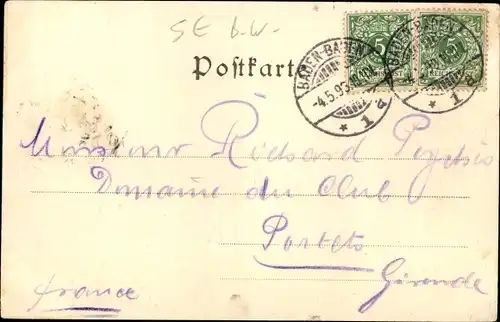 5E b.W.
Postkarte
BADEN-BADEN
-4.5.9
* 1 d
BADEN-BADEN
* 1 d
5
Monsieur Richard
Domaine du Club
Portets
Gironde
France